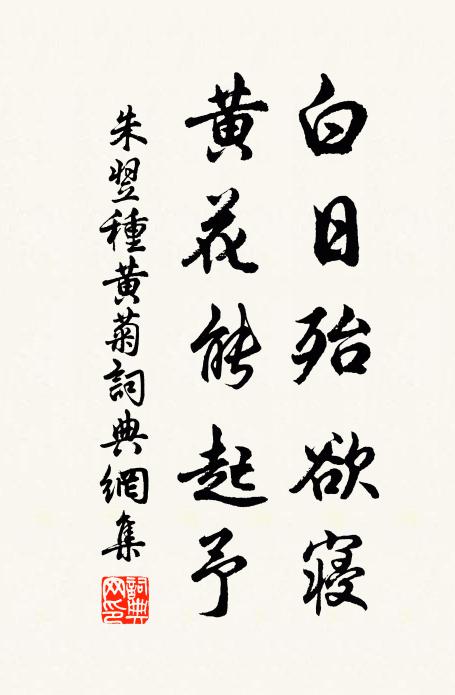 白日殆欲寝
黄花能起予
朱翌種黄菊詞典網集
詞典網印